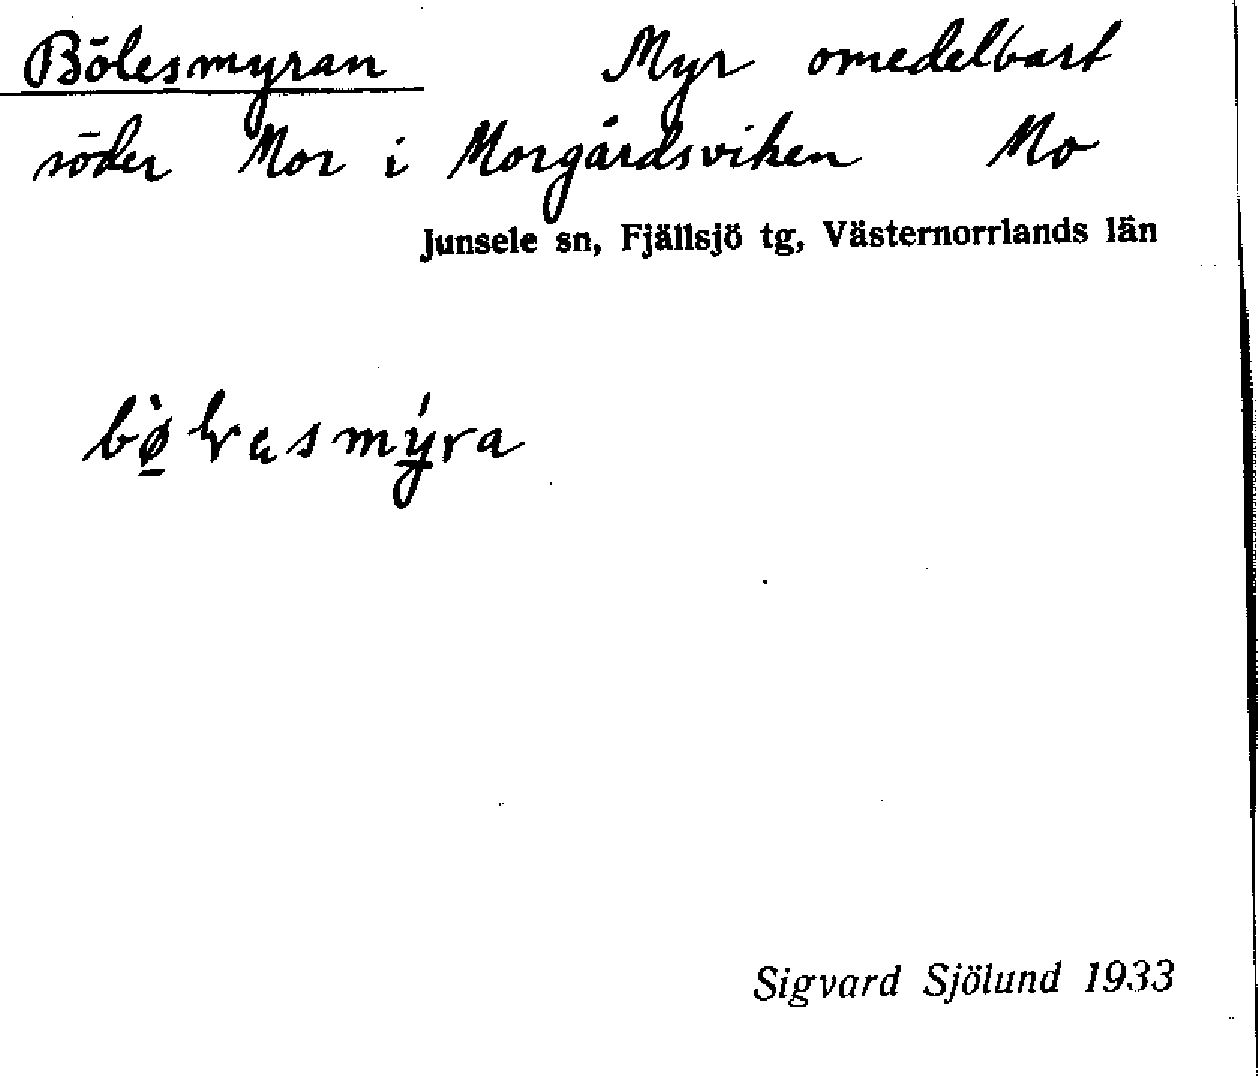 Bölesmyran Myr omedelbart
söder Mor i Morgårdsviken Mo
Junsele sn, Fjällsjö tg, Västernorrlands län
Sigvard Sjölund 1933